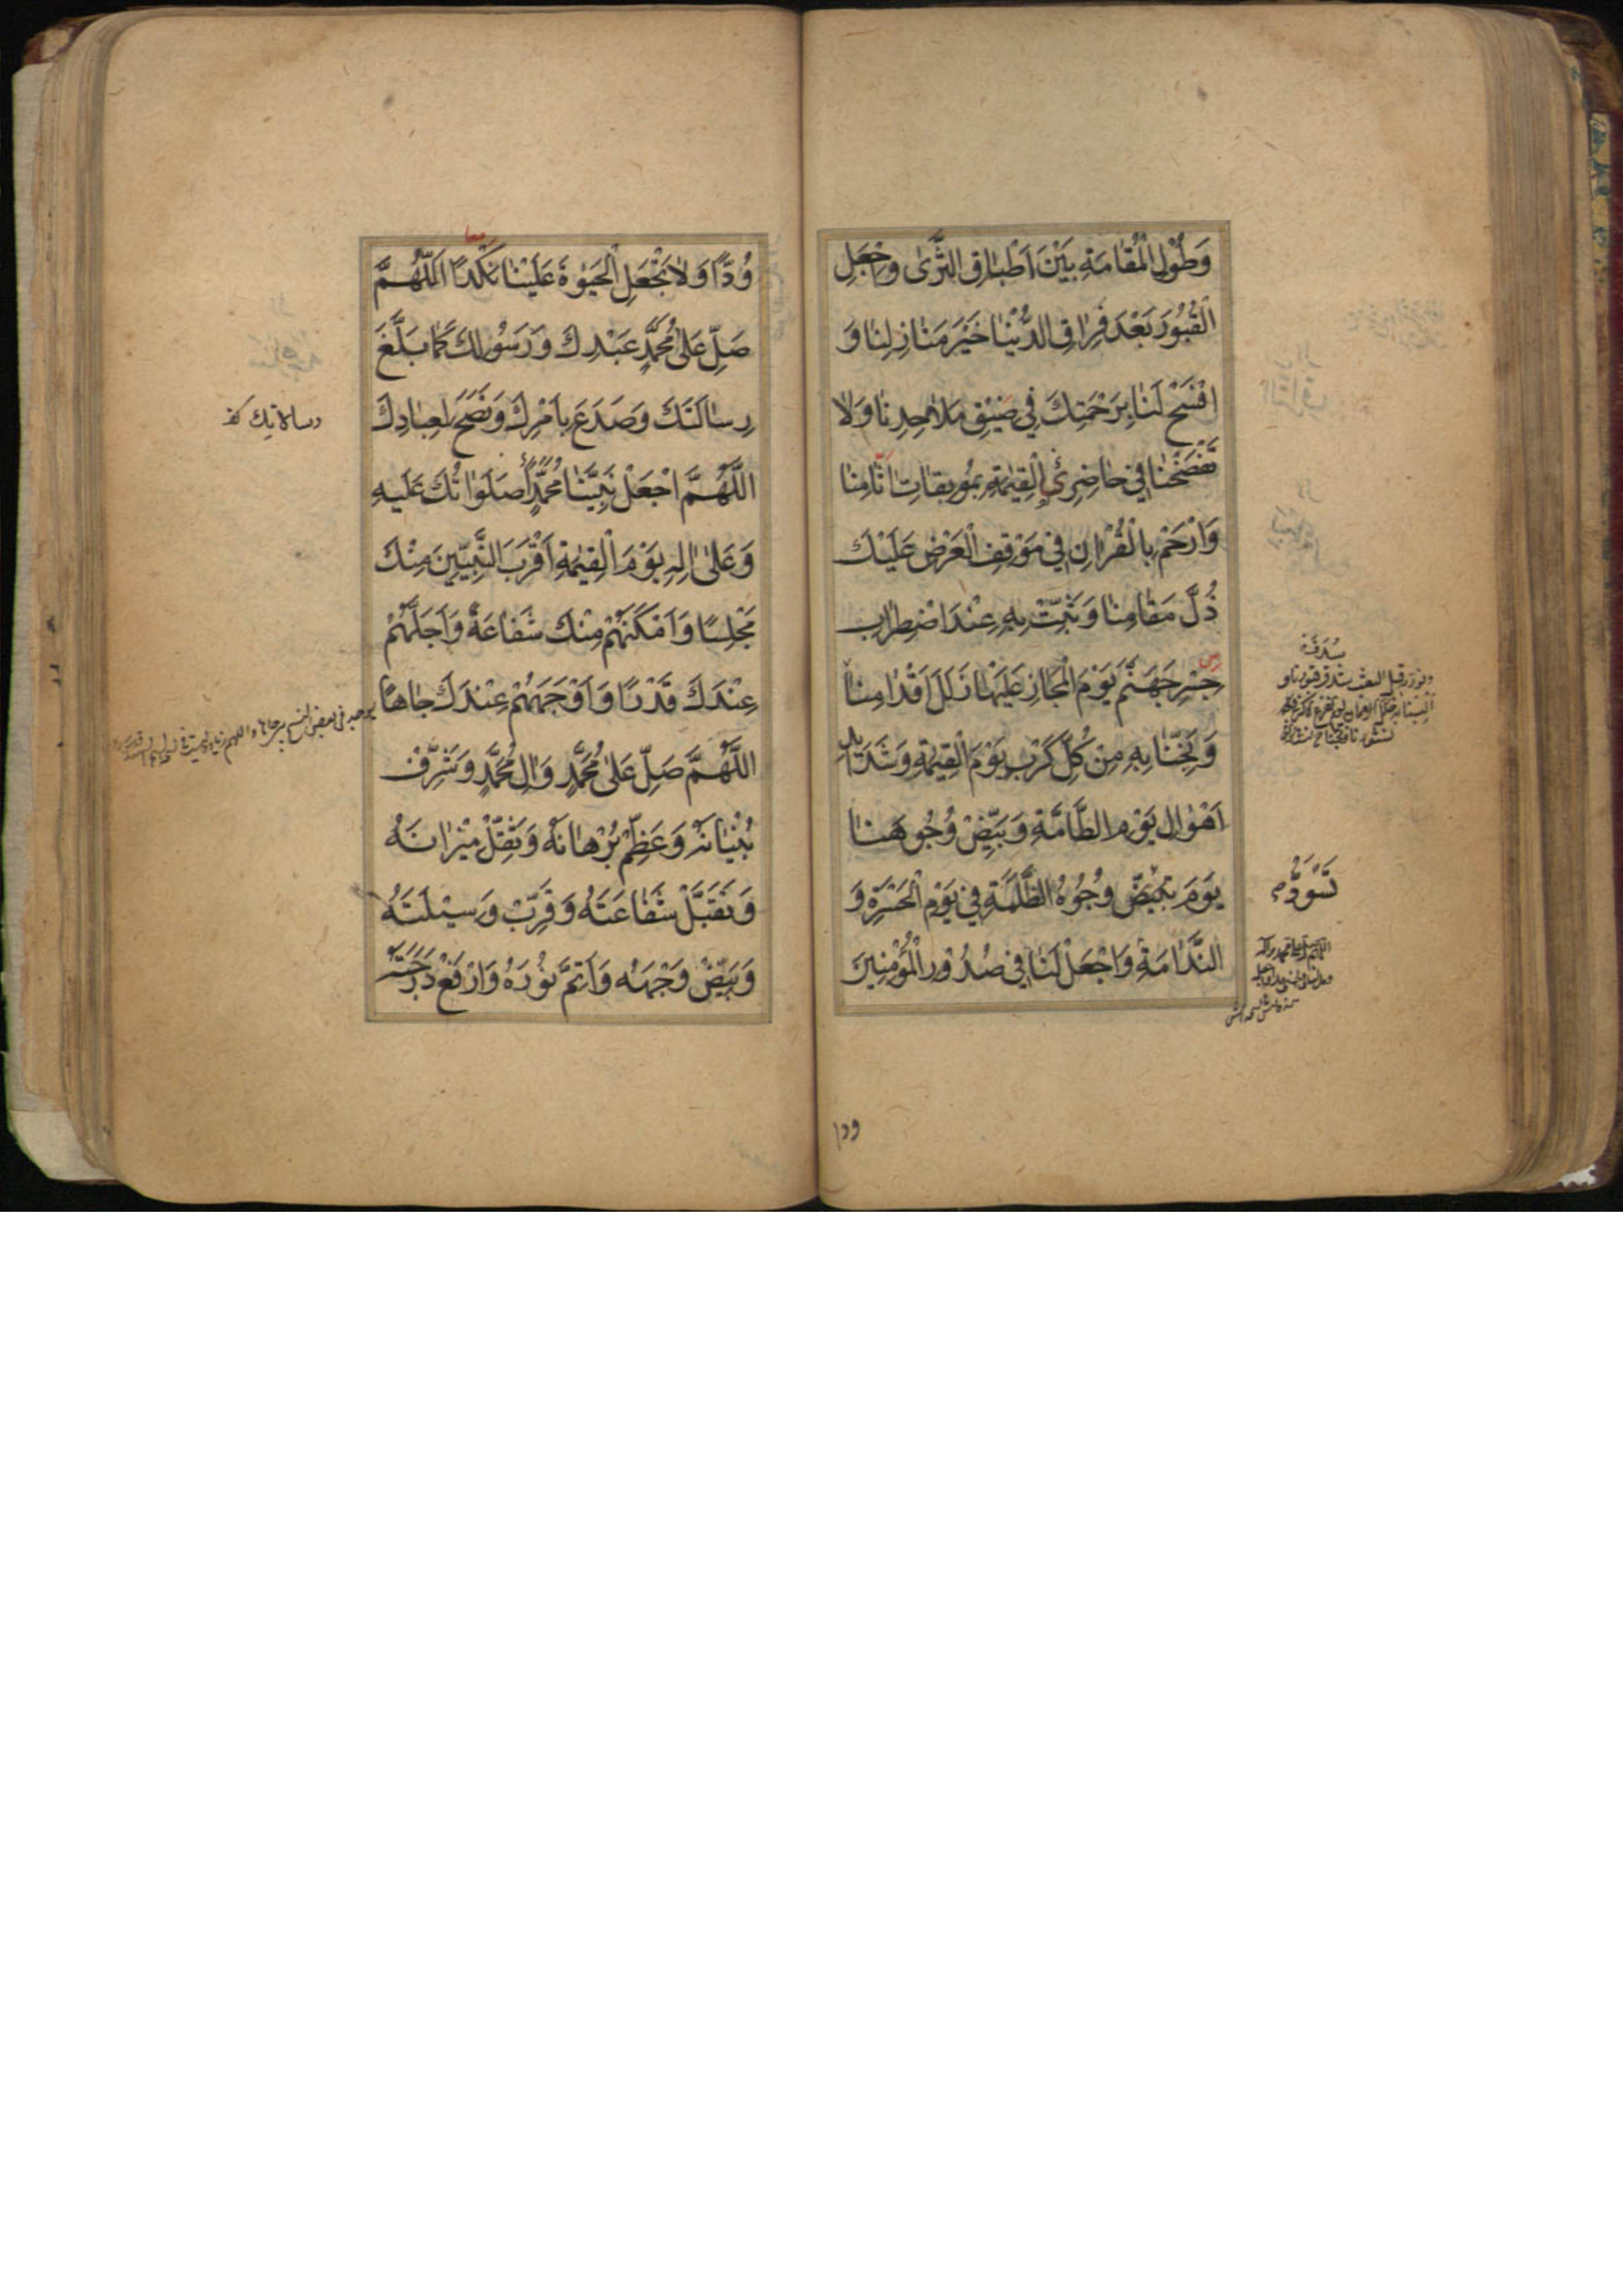 وَطُوْلِ الْمُقامَةِ بَيْنَ اَطْباقِ الثَّرىٰ وَاجْعَلِ
الْقُبُورَ بَعْدَ فِراقِ الدُّنْيٰا خَيْرَ مَنٰازِلِنٰا وَ
افْسَحْ لَنٰا بِرَحْمَتِكَ فى ضيْقِ مَلاحِدِنٰا وَلاٰ
تَفْضَحْنٰا فى حٰاضِرِى الْقِيٰمَةِ بِمُوبِقاتِ اٰثٰامِنٰا
وَارْحَمْ بِالْقُرْاٰنِ فى مَوْقِفِ الْعَرْضِ عَلَيْكَ
ذُلَّ مَقٰامِنٰا وَثَبِّتْ بِهِ عِنْدَ اضْطِرٰابِ
جِسْرِ جَهَنَّمَ يَوْمَ الْمَجٰازِ عَلَيْهٰا زَلَلَ اَقْدٰامِنٰا
وَنَجِّنٰا بِهِ مِنْ كُلِّ كَرْبٍ يَوْمَ الْقِيٰمَةِ وَشَدٰائِدِ
اَهْوٰالِ يَوْمِ الطّٰامَّةِ وَبَيِّضْ وُجُوهَنٰا
يَوْمَ تَبْيَضُّ وُجُوهُ الظَّلَمَةِ فى يَوْمِ الْحَسْرَةِ وَ
تَسْوَدُّ
النَّدٰامَةِ وَاجْعَلْ لَنٰا فى صُدُوْرِ الْمُؤْمِنِينَ
ودا
وُدًّا وَلاٰ تَجْعَلِ الْحَيٰوةَ عَلَيْنٰا نَكْدًا اَللّٰهُمَّ
معا
صَلِّ عَلىٰ مُحَمَّدٍ عَبْدِكَ وَرَسُولِكَ كَمٰا بَلَّغَ
رِسٰالَتَكَ وَصَدَعَ بِاَمْرِكَ وَنَصَحَ لِعِبٰادِكَ
اَللّٰهُمَّ اجْعَلْ نَبِيَّنٰا مُحَمَّدًا صَلَوٰاتُكَ عَلَيْهِ
وَعَلىٰ اٰلِهِ يَوْمَ الْقِيٰمَةِ اَقْرَبَ النَّبِيّينَ مِنْكَ
مَجْلِسًا وَاَمْكَنَهُمْ مِنْكَ شَفٰاعَةً وَاَجَلَّهُمْ
عِنْدَكَ قَدْرًا وَاَوْجَهَهُمْ عِنْدَكَ جٰاهًا
اَللّٰهُمَّ صَلِّ عَلىٰ مُحَمَّدٍ وَاٰلِ مُحَمَّدٍ وَشَرِّفْ
بُنْيٰانَهُ وَعَظِّمْ بُرْهٰانَهُ وَثَقِّلْ مِيْزٰانَهُ
وَتَقَبَّلْ شَفٰاعَتَهُ وَقَرِّبْ وَسِيْلَتَهُ
وَبَيِّضْ وَجْهَهُ وَاَتِمَّ نُورَهُ وَارْفَعْ دَرَجَتَهُ